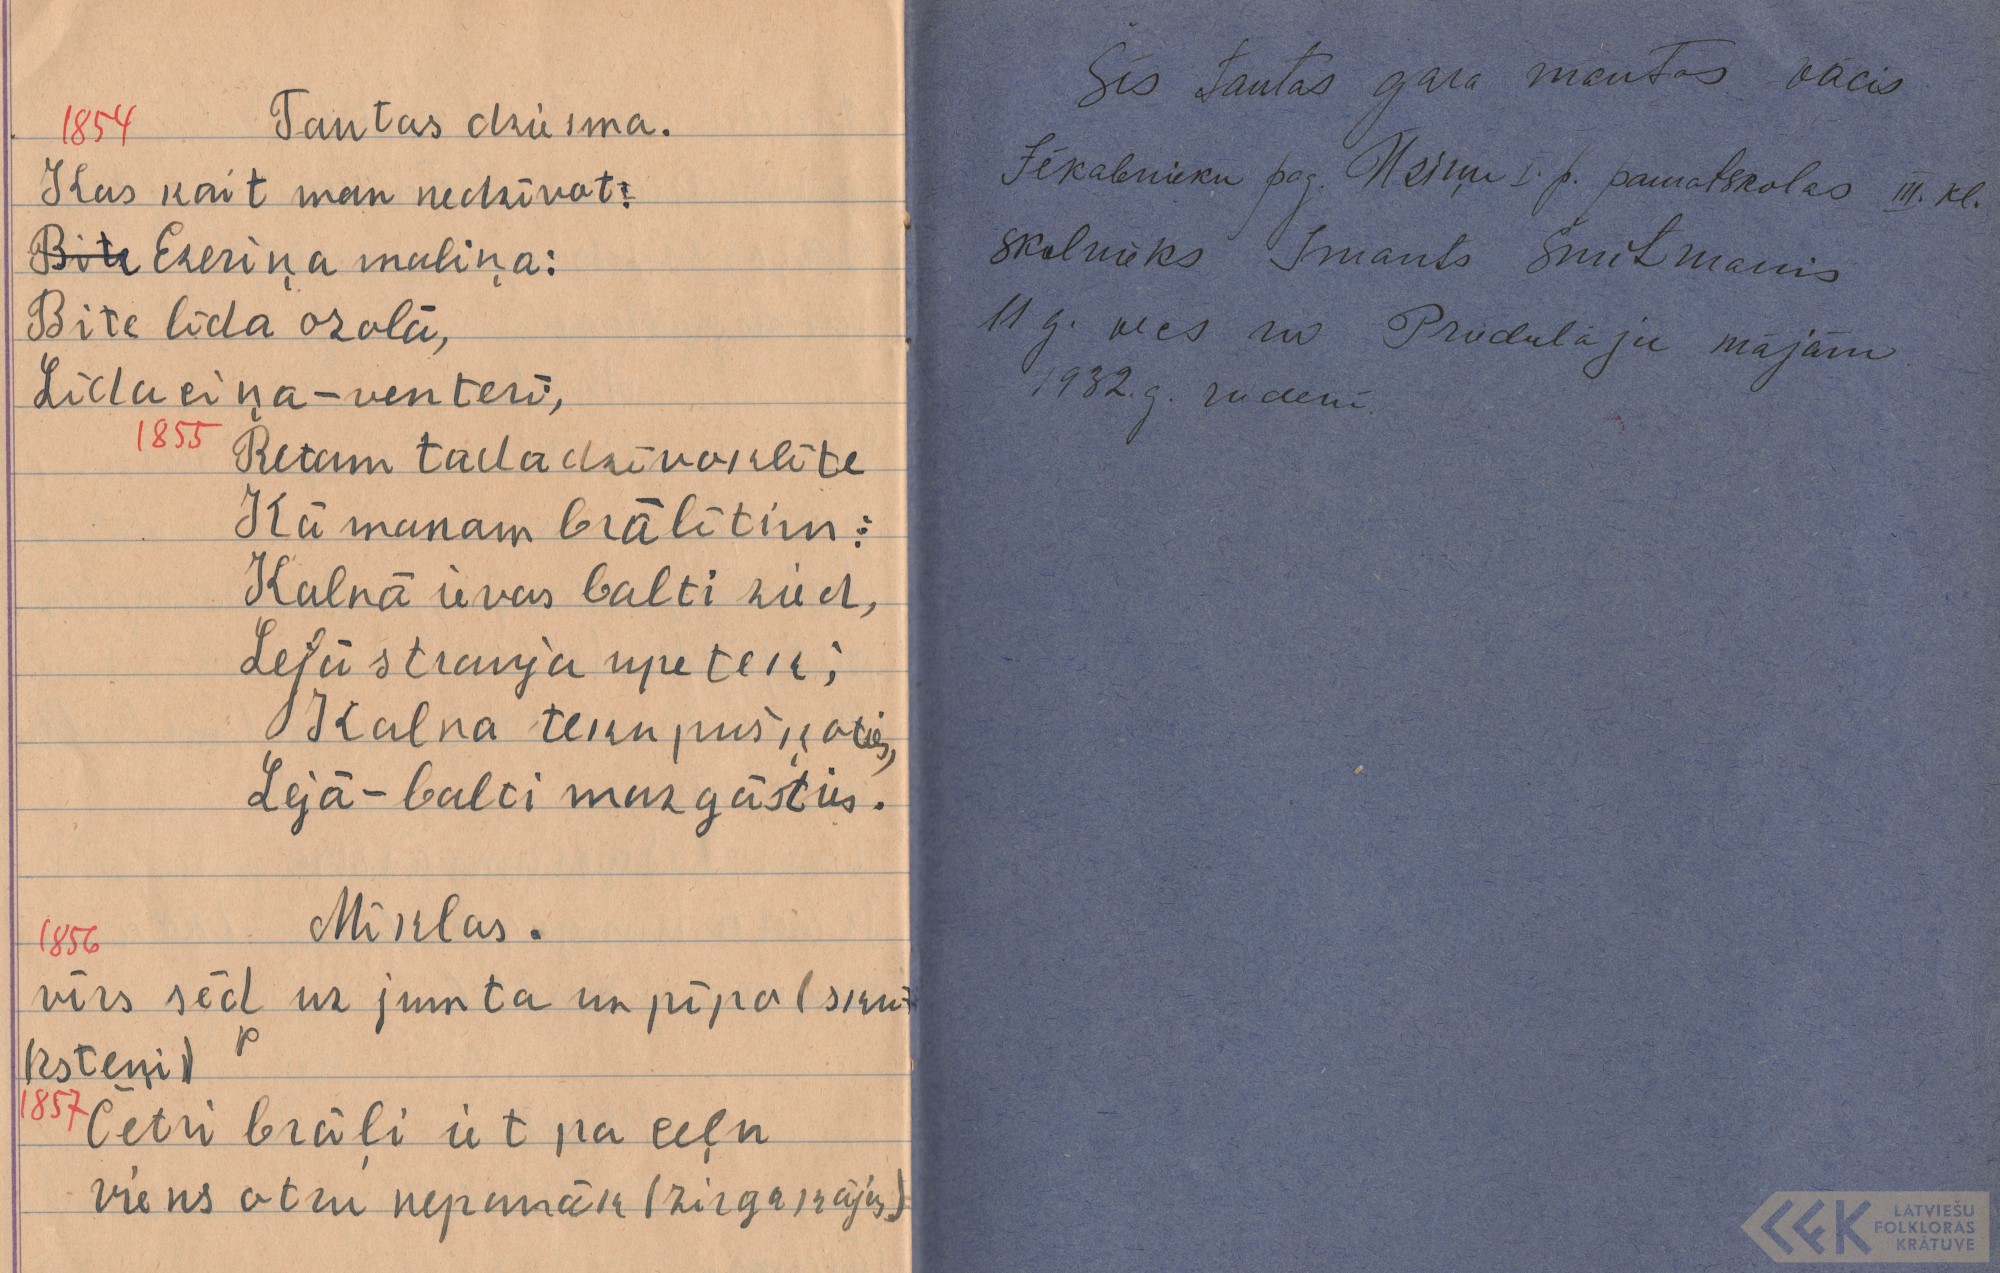 1854 Tautas dziesma.
Kas kait man nedzīvot:
Bite Ezeriņa maliņa:
Bite līda ozolā,
Līda ciņa-venteri,
1855 Retam tada dzīvoklīte
Kā manam brālītim:
Kalnā ievas balti zied,
Lejā strauja upe tek;
Kalna teku pušķoties,
Lejā-balti mazgāsties.
Mīklas.
1856
vīrs sēd uz jumta un pīpo (skur-
ksteņi)
p
1857 Četri brāļi iet pa ceļu
viens otru nepanāk (zirga kājas)
Šis tautas gara mantas vācis
Jēkabnieku pag. Uziņu I. p. pamatskolas III. kl.
skolnieks Imants Šmitmanis
11 g. vecs no Priedulāju mājām
1932. g. rudenī.
LATVIEŠU
FOLKLORAS
KRĀTUVE